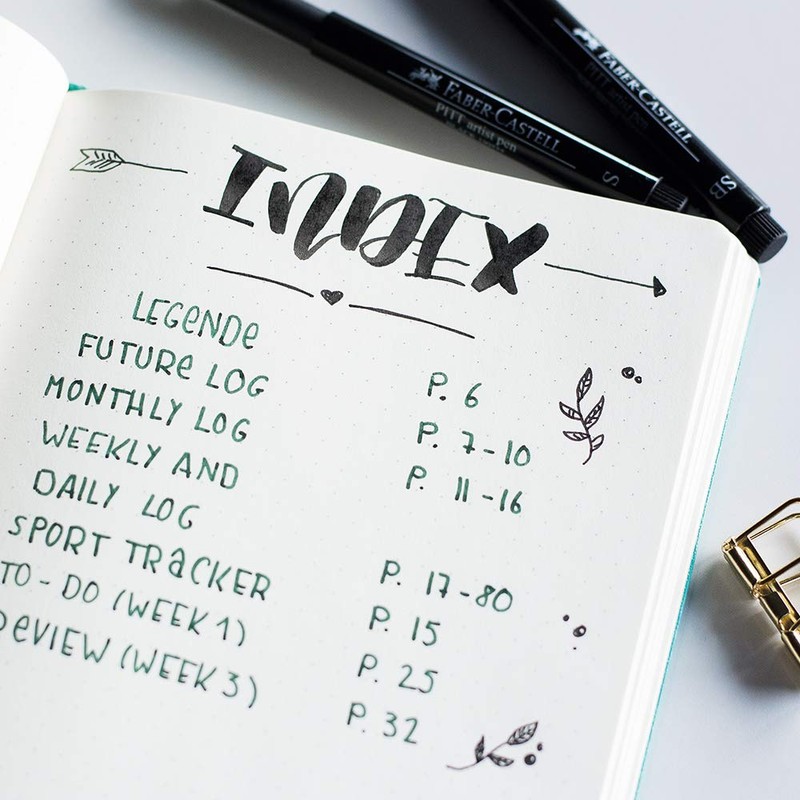 FABER-CASTELL
PITT artist pen
S
FABER-CASTELL
PITT artist pen
SB
INDEX
LEGENDE P. 6
FUTURE LOG P. 7-10
MONTHLY LOG P. 11-16
WEEKLY AND
DAILY LOG P. 17-80
SPORT TRACKER P. 15
TO-DO (WEEK 1) P. 25
(WEEK 3) P. 32